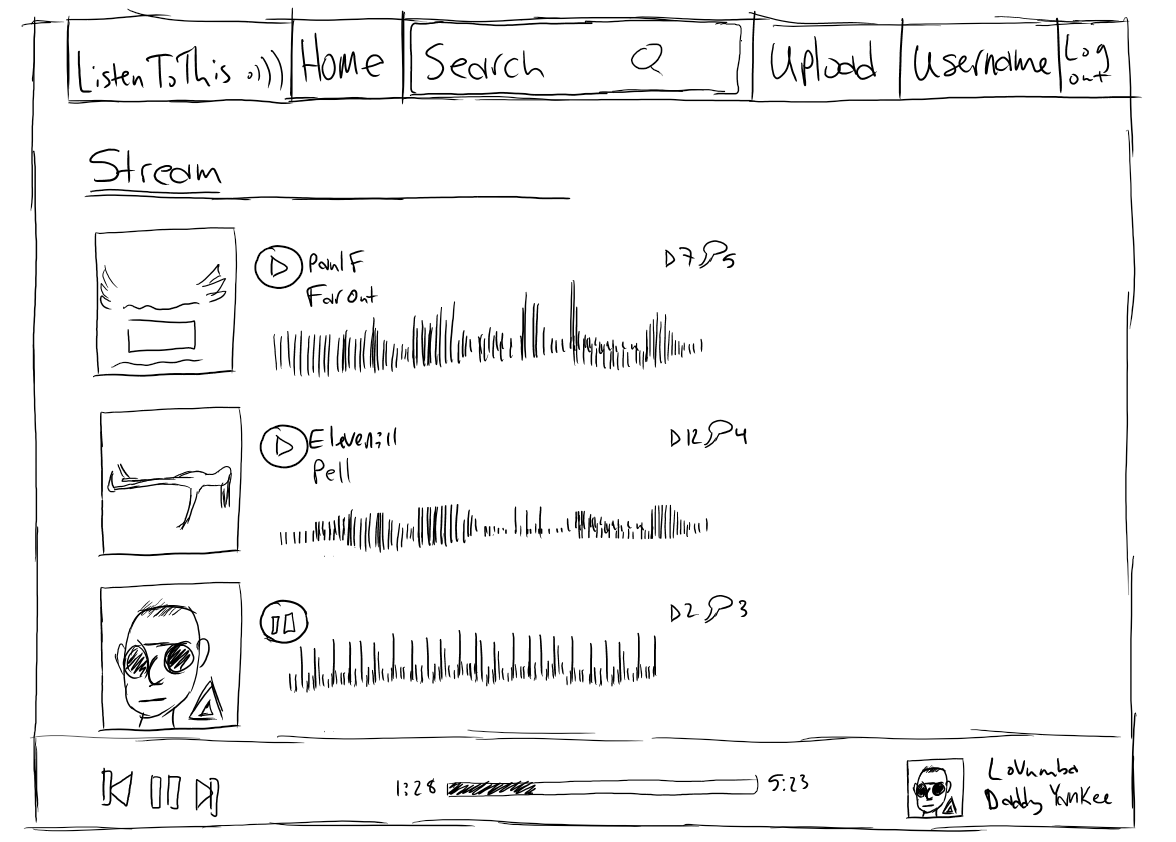 ListenToThis
Home
Search
Upload
Username
Log
out
Stream
Paul F
Far Out
7 5
Elevenill
Pell
12 4
2 3
1:28
5:23
Lovumba
Daddy Yankee